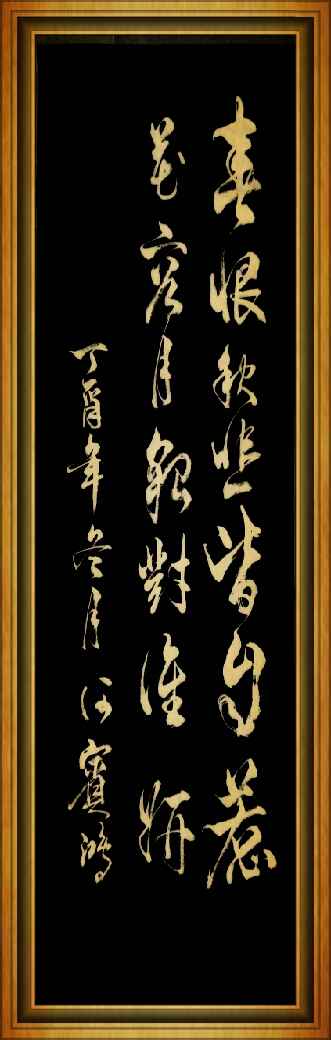 春恨秋悲皆自惹
花容月貌對誰妍
丁酉年冬月 賓鴻